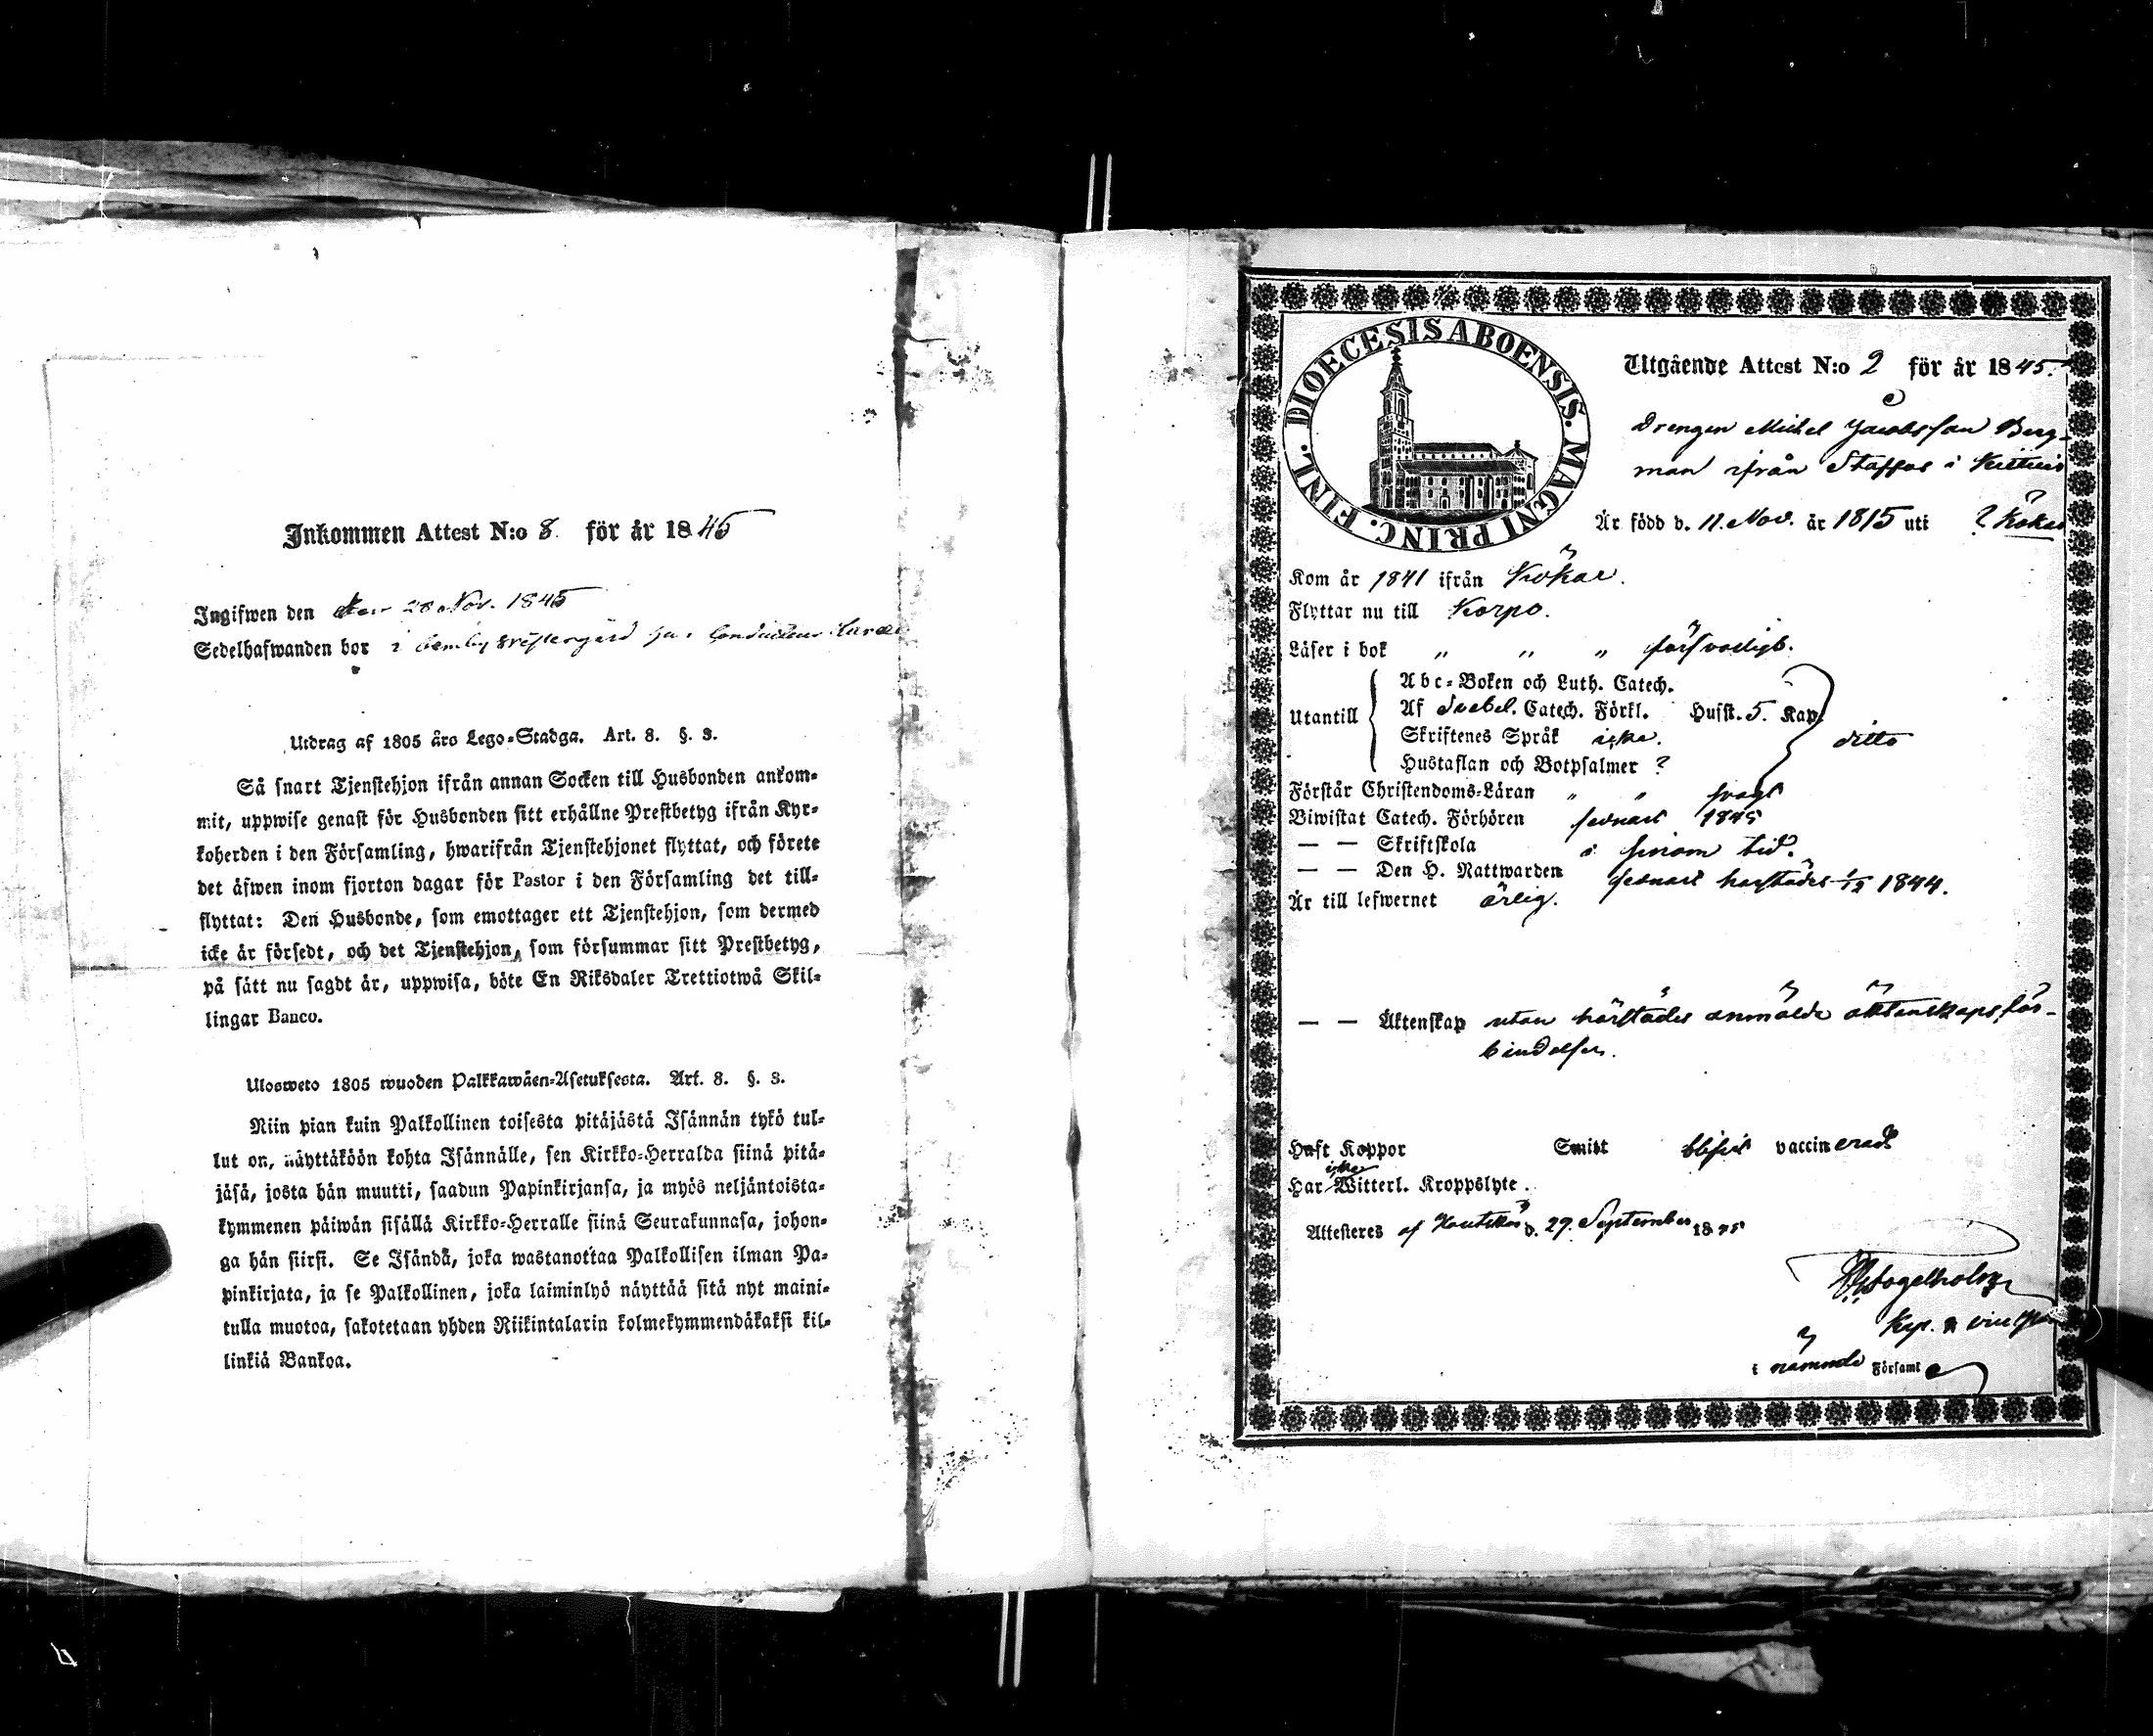 Inkommen Attest N:o 8. för år 1845
Ingifwen den den 28 Nov. 1845
Sedelhafwanden bor i
Utdrag af 1805 års Lego-Stadga. Art. 8. §. 3.
Så snart Tjenstehjon ifrån annan Socken till Husbonden ankom-
mit, uppwise genast för Husbonden sitt erhållne Prestbetyg ifrån Kyr-
koherden i den Församling, hwarifrån Tjenstehjonet flyttat, och förete
det äfwen inom fjorton dagar för Pastor i den Församling det till-
flyttat: Den Husbonde, som emottager ett Tjenstehjon, som dermed
icke är försedt, och det Tjenstehjon, som försummar sitt Prestbetyg,
på sätt nu sagdt är, uppwisa, böte En Riksdaler Trettiotwå Skil-
lingar Banco.
Ulosweto 1805 wuoden Palkkawäen-Asetuksesta. Art. 8. §. 3.
Niin pian kuin Palkollinen toisesta pitäjästä Isännän tykö tul-
lut on, näyttäköön kohta Isännälle, sen Kirkko-Herralda siinä pitä-
jäsä, josta hän muutti, saadun Papinkirjansa, ja myös neljäntoista-
kymmenen päiwän sisällä Kirkko-Herralle siinä Seurakunnasa, johon-
ga hän siirsi. Se Isändä, joka wastanottaa Palkollisen ilman Pa-
pinkirjata, ja se Palkollinen, joka laiminlyö näyttää sitä nyt maini-
tulla muotoa, sakotetaan yhden Riikintalarin kolmekymmendäkaksi kil-
linkiä Bankoa.
DIOECESIS ABOENSIS. MAGNI PRINC. FINL.
Utgående Attest N:o 2 för år 1845.
Drengen Michel Jacobsson Berg-
man ifrån Staffas i
Är född d. 11. Nov. år 1815 uti ? Kökar
Kom år 1841 ifrån Kökar.
Flyttar nu till Korpo.
Läser i bok „ „ „ försvarligt.
Utantill
Abc-Boken och Luth. Catech.
Af Svebel. Catech. Förkl. Husst. 5. Kap.
Skriftenes Språk icke.
Hustaflan och Botpsalmer ?
ditto
Förstår Christendoms-Läran „ „ svagt
Biwistat Catech. Förhören sednast 1845
— — Skriftskola i sinom tid.
— — Den H. Nattwarden sednast härstädes 1/12 1844.
Är till lefwernet ärlig.
— — Äktenskap utan härstädes anmälde äktenskapsför-
bindelser.
Haft Koppor Smitt blifvit vaccinerad
icke
Har Witterl. Kroppslyte.
Attesteras af Houtskär d. 29. September 1845
i nämnde Församl